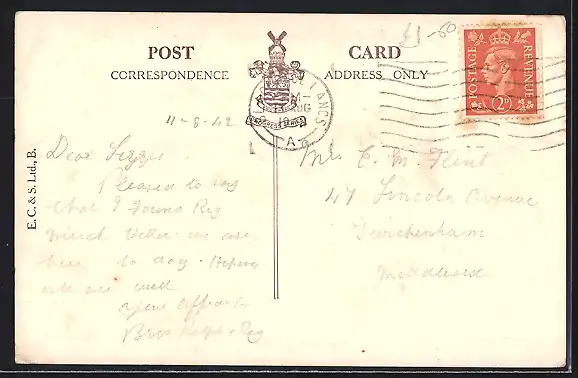 £1-50
POST CARD
CORRESPONDENCE ADDRESS ONLY
POSTAGE REVENUE
2D
LANCS
AUG
PROGRESS
A
11-8-42
E. C. & S. Ltd., B.
Dear Lizzie
Pleased to say
that I found Reg
much better we are
here to day. Hoping
all are well
your affec
Bro Ralph & Reg
Mrs C. M. Flint
47 Lincoln Avenue
Twickenham
Middlesex